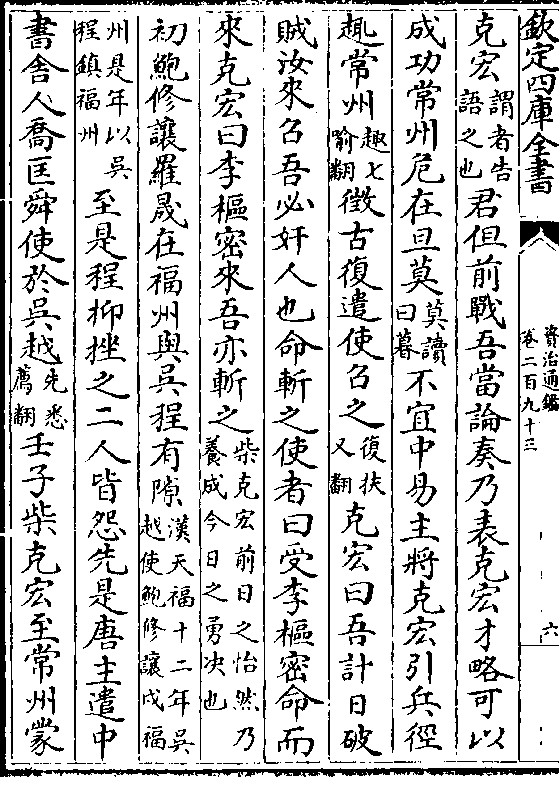 欽定四庫全書
資治通鑑
卷二百九十三
六
克宏謂者告語之也君但前戰吾當論奏乃表克宏才略可以
成功常州危在旦莫莫讀曰暮不宜中易主將克宏引兵徑
趣常州趣七喻翻徵古復遣使召之復扶又翻克宏曰吾計日破
賊汝來召吾必奸人也命斬之使者曰受李樞密命而
來克宏曰李樞密來吾亦斬之柴克宏前日之怡然乃養成今日之勇決也
初鮑修讓羅晟在福州與吳程有隙漢天福十二年吳越使鮑修讓戍福
州是年以吳程鎮福州至是程抑挫之二人皆怨先是唐主遣中
書舍人喬匡舜使於吳越先悉薦翻壬子柴克宏至常州蒙